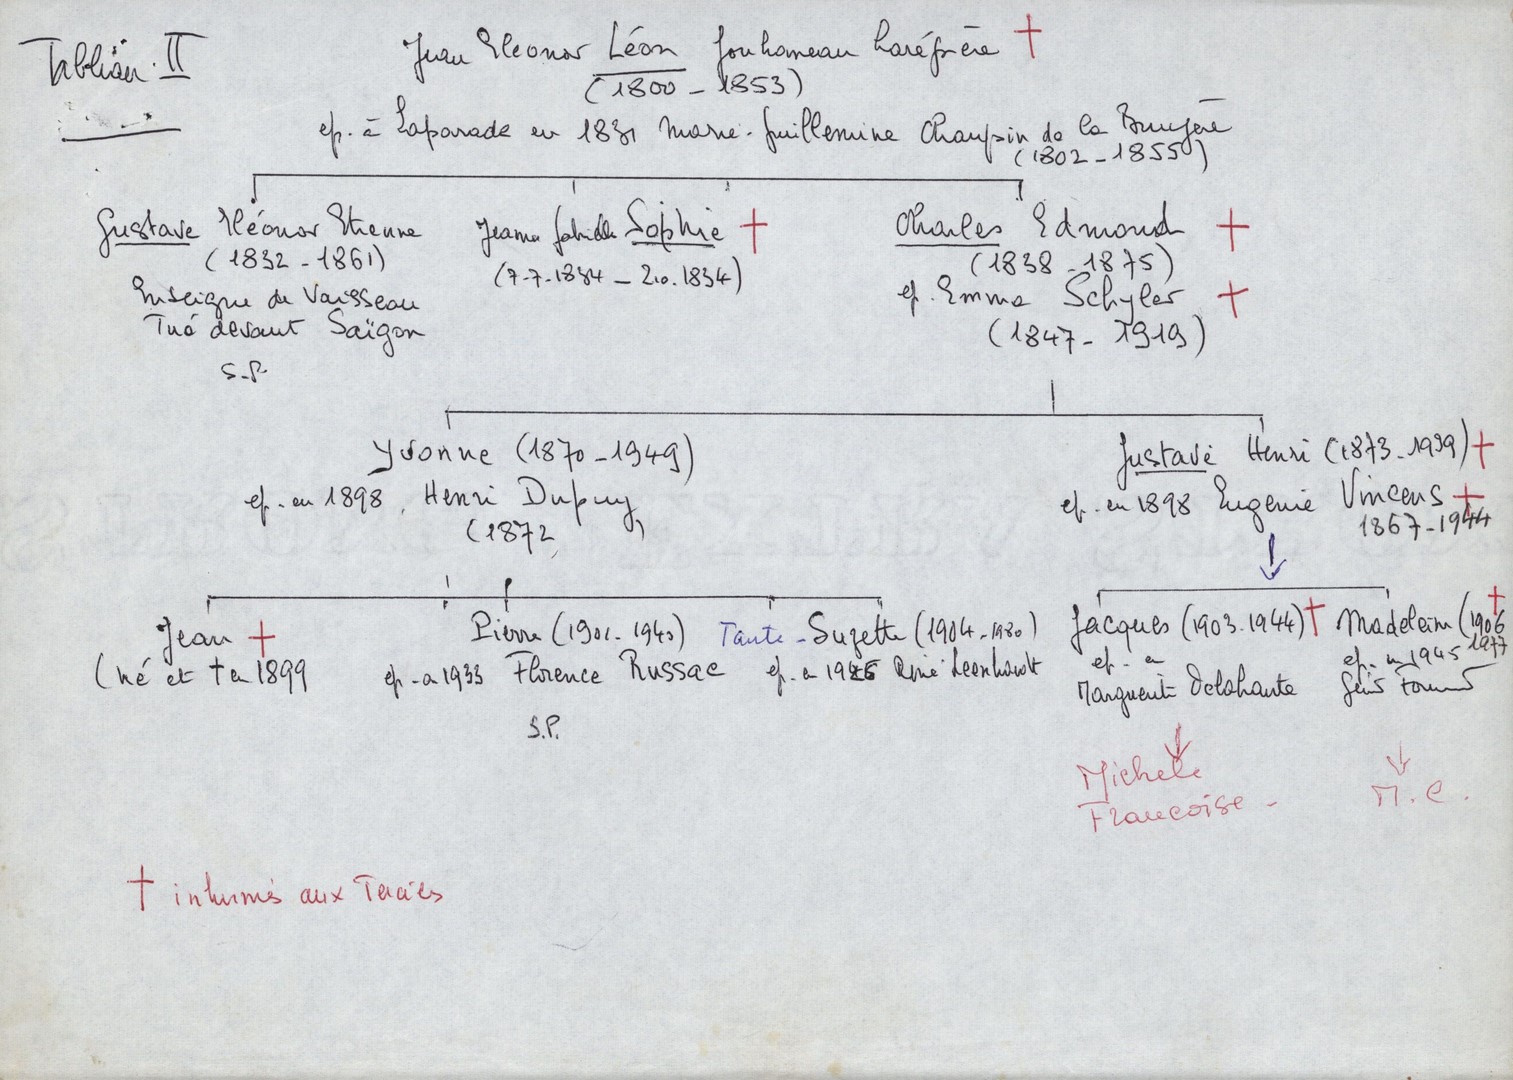 Tableau. II
Jean Eleonor Léon Jouhaneau Laregnère †
(1800 - 1853)
ep. à Laparade en 1831 Marie-Guillemine Chaupin de la Bruyère
(1802 - 1855)
Gustave Eléonor Etienne
(1832 - 1861)
Enseigne de Vaisseau
Tué devant Saïgon
S.P.
Jeanne Sophie †
(7-7-1834 - 1834)
Charles Edmond †
(1838 - 1875)
ep. Emma Schyler †
(1847 - 1919)
Yvonne (1870 - 1949)
ep. en 1898, Henri Dupuy
(1872 )
Gustave Henri (1873 - 1939) †
ep. en 1898 Eugenie Vincens †
1867 - 1944
Jean †
(né et † en 1899
Pierre (1901 - 1940)
ep. en 1933 Florence Russac
S.P.
Tante - Suzette (1904 - 1980)
ep. en René Leenhardt
Jacques (1903 - 1944) †
ep. en
Marguerite Delahante
Madeleine (1906 †
1977
ep. en 1945
Michele
Francoise -
M. C.
† inhumés aux